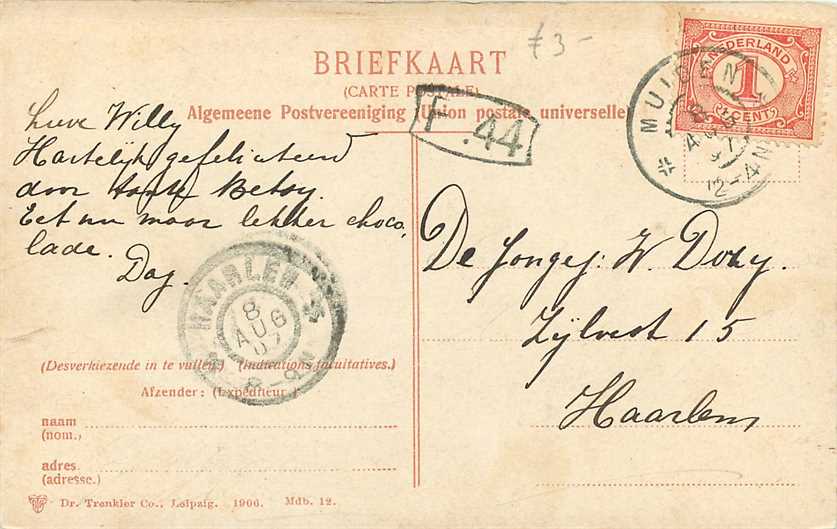 £3-
BRIEFKAART
(CARTE POSTALE)
Algemeene Postvereeniging (Union postale universelle)
F.44
NEDERLAND
1
CENT
MUIDEN
8 AUG 07
12-4N
Lieve Willy
Hartelijk gefeliciteerd
door tante Betsy.
Eet nu maar lekker choco,
lade.
Dag.
HAARLEM
8
AUG
07
8-9N
De Jongej: W. Doxy.
Zijlvest 15
Haarlem
(Desverkiezende in te vullen) (Indications facultatives.)
Afzender: (Expéditeur)
naam
(nom.)
adres
(adresse.)
Dr. Trenkler Co., Leipzig. 1906. Mdb. 12.